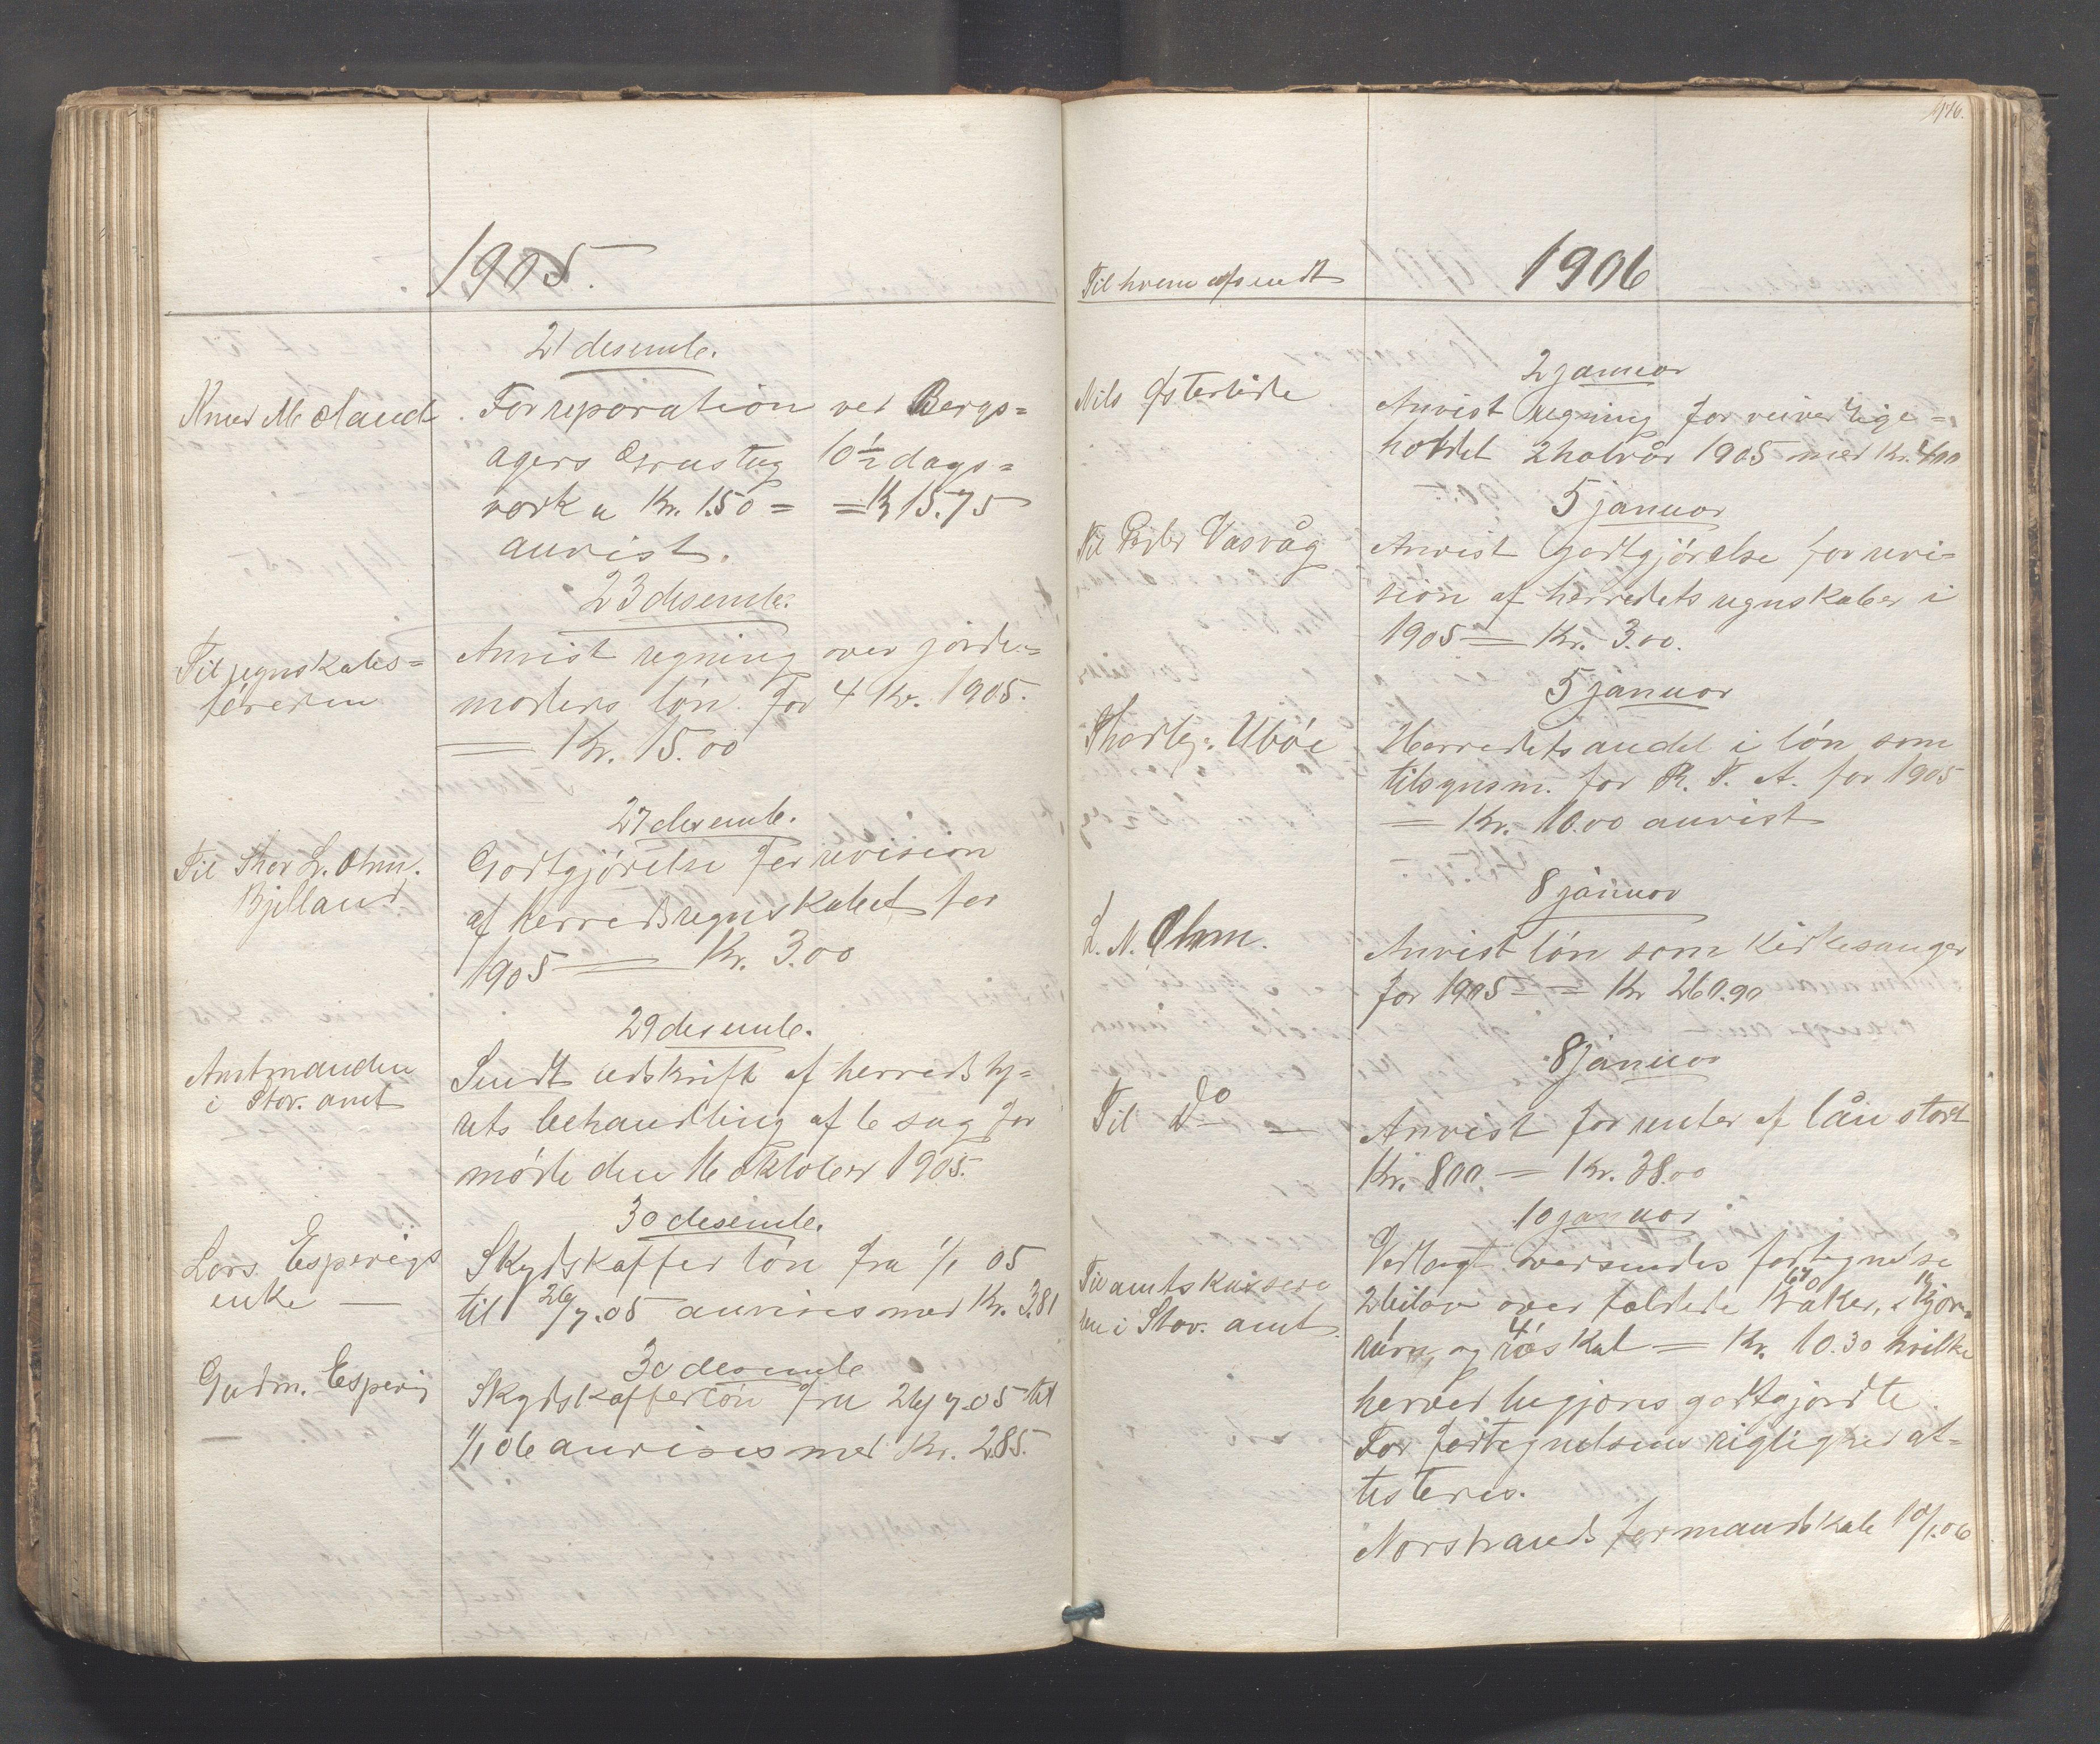 1905.
21 desemb.
Knud M. Aland. For reparation ved Bergs=
agers Grustag 10½ dags=
verk a Kr. 1.50 = = Kr 15.75
anvist.
23 desemb.
Til regnskabs=
føreren
Anvist regning over jorde=
moders løn for 4 Kv. 1905.
= Kr. 15.00
27 desemb.
Til Thor L. Ohm.
Bjelland
Godtgjørelse for revision
af herredsregnskabet for
1905 = Kr. 3.00
29 desemb.
Amtmanden
i Stav. amt
Sendt udskrift af herredsty=
rets behandling af 6 sag for
møde den 16 oktober 1905.
30 desemb.
Lars Espevigs
enke —
Skydskaffer løn fra 1/1 05
til 26/7.05 anvises med Kr. 3.81
30 desemb
Gudm. Espevig
Skydskafferløn fra 26/7.05 til
1/1 06 anvises med Kr. 2.85.
176.
Til hvem afsendt
1906
2 januar
Nils Østerhede
Anvist regning for veivedlige=
holdet 2 halvår 1905 med Kr. 4.00
5 januar
Til Vasvåg
Anvist godtgjørelse for revi=
sion af herredets regnskaber i
1905 = Kr. 3.00.
5 januar
Thorbj. Ubøe
Herredets andel i løn som
tilsynsm. for R. T. A. for 1905
= Kr. 10.00 anvist
8 januar
L. N. Ohm.
Anvist løn som kirkesanger
for 1905 = Kr 260.90
8 januar
Til Do —
Anvist for renter af lån stort
Kr. 800 — Kr. 38.00
10 januar
Til amtskassere
ren i Stav. amt.
Vedlagt oversendes fortegnelse
2 bilag over fældede kråker, kjor=
ørn, og røskat = Kr. 10.30 hvilke
herved begjæres godtgjordte.
For fortegnelsens rigtighed at=
testeres.
Norstrands formandskab 10/1.06